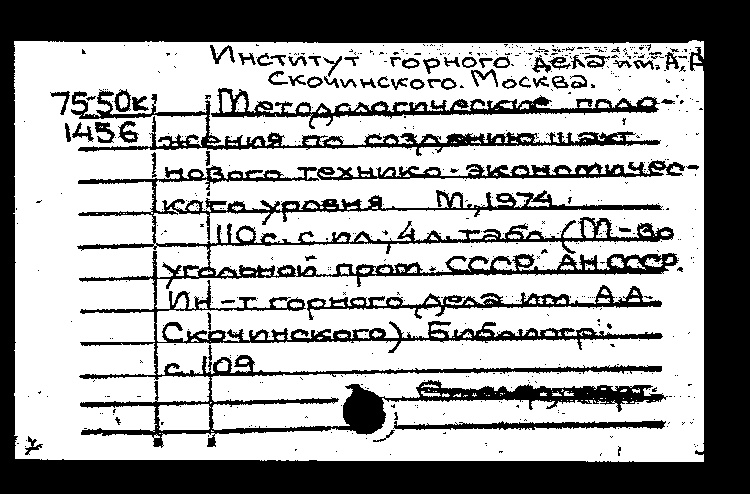 Институт горного дела им. А.А
Скочинского. Москва.
75-50к
1456
Методологические поло-
жения по созданию шахт
нового технико-экономичес-
кого уровня. М., 1974.
110 с. с ил.; 4 л. табл. (М-во
угольной пром. СССР. АН СССР.
Ин-т горного дела им. А.А.
Скочинского). Библиогр.:
с. 109